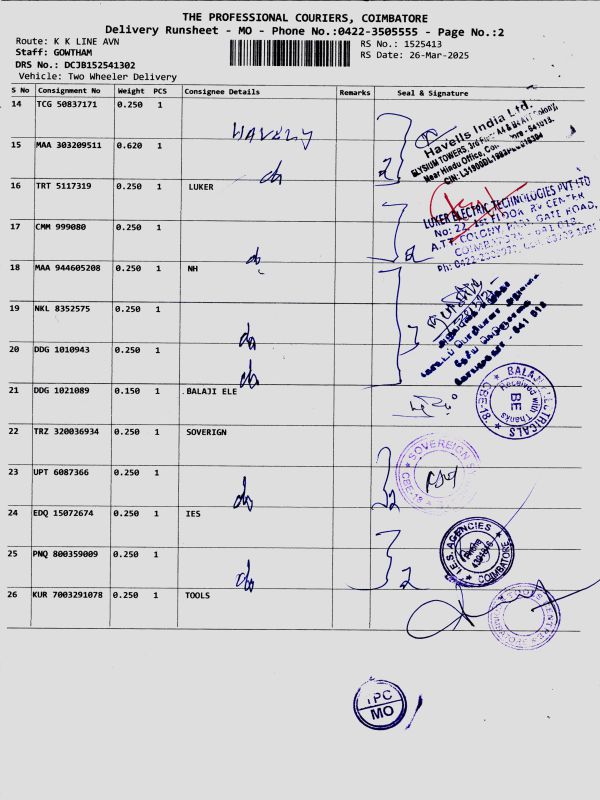 THE PROFESSIONAL COURIERS, COIMBATORE
Delivery Runsheet - MO - Phone No.:0422-3505555 - Page No.:2
Route: K K LINE AVN
RS No.: 1525413
Staff: GOWTHAM
RS Date: 26-Mar-2025
DRS No.: DCJB152541302
Vehicle: Two Wheeler Delivery
S No Consignment No Weight PCS Consignee Details Remarks Seal & Signature
14 TCG 50837171 0.250 1
HAVELY
Havells India Ltd.
ELYSIUM TOWERS, 3rd Floor
Near Hindu Office,
15 MAA 303209511 0.620 1
do
2
16 TRT 5117319 0.250 1 LUKER
LUKER ELECTRIC TECHNOLOGIES PVT LTD
No: 22, 1st FLOOR, RV CENTER
A.T.T. COLONY, PARK GATE ROAD,
17 CMM 999080 0.250 1
do
2
18 MAA 944605208 0.250 1 NH
19 NKL 8352575 0.250 1
do
3
641 018
20 DDG 1010943 0.250 1
do
21 DDG 1021089 0.150 1 BALAJI ELE
BALAJI ELECTRICALS
Received with Thanks
BE
CBE-18.
22 TRZ 320036934 0.250 1 SOVERIGN
SOVEREIGN
CBE-18
23 UPT 6087366 0.250 1
do
2
24 EDQ 15072674 0.250 1 IES
I.E.S. AGENCIES
COIMBATORE
25 PNQ 800359009 0.250 1
do
2
26 KUR 7003291078 0.250 1 TOOLS
TPC
MO